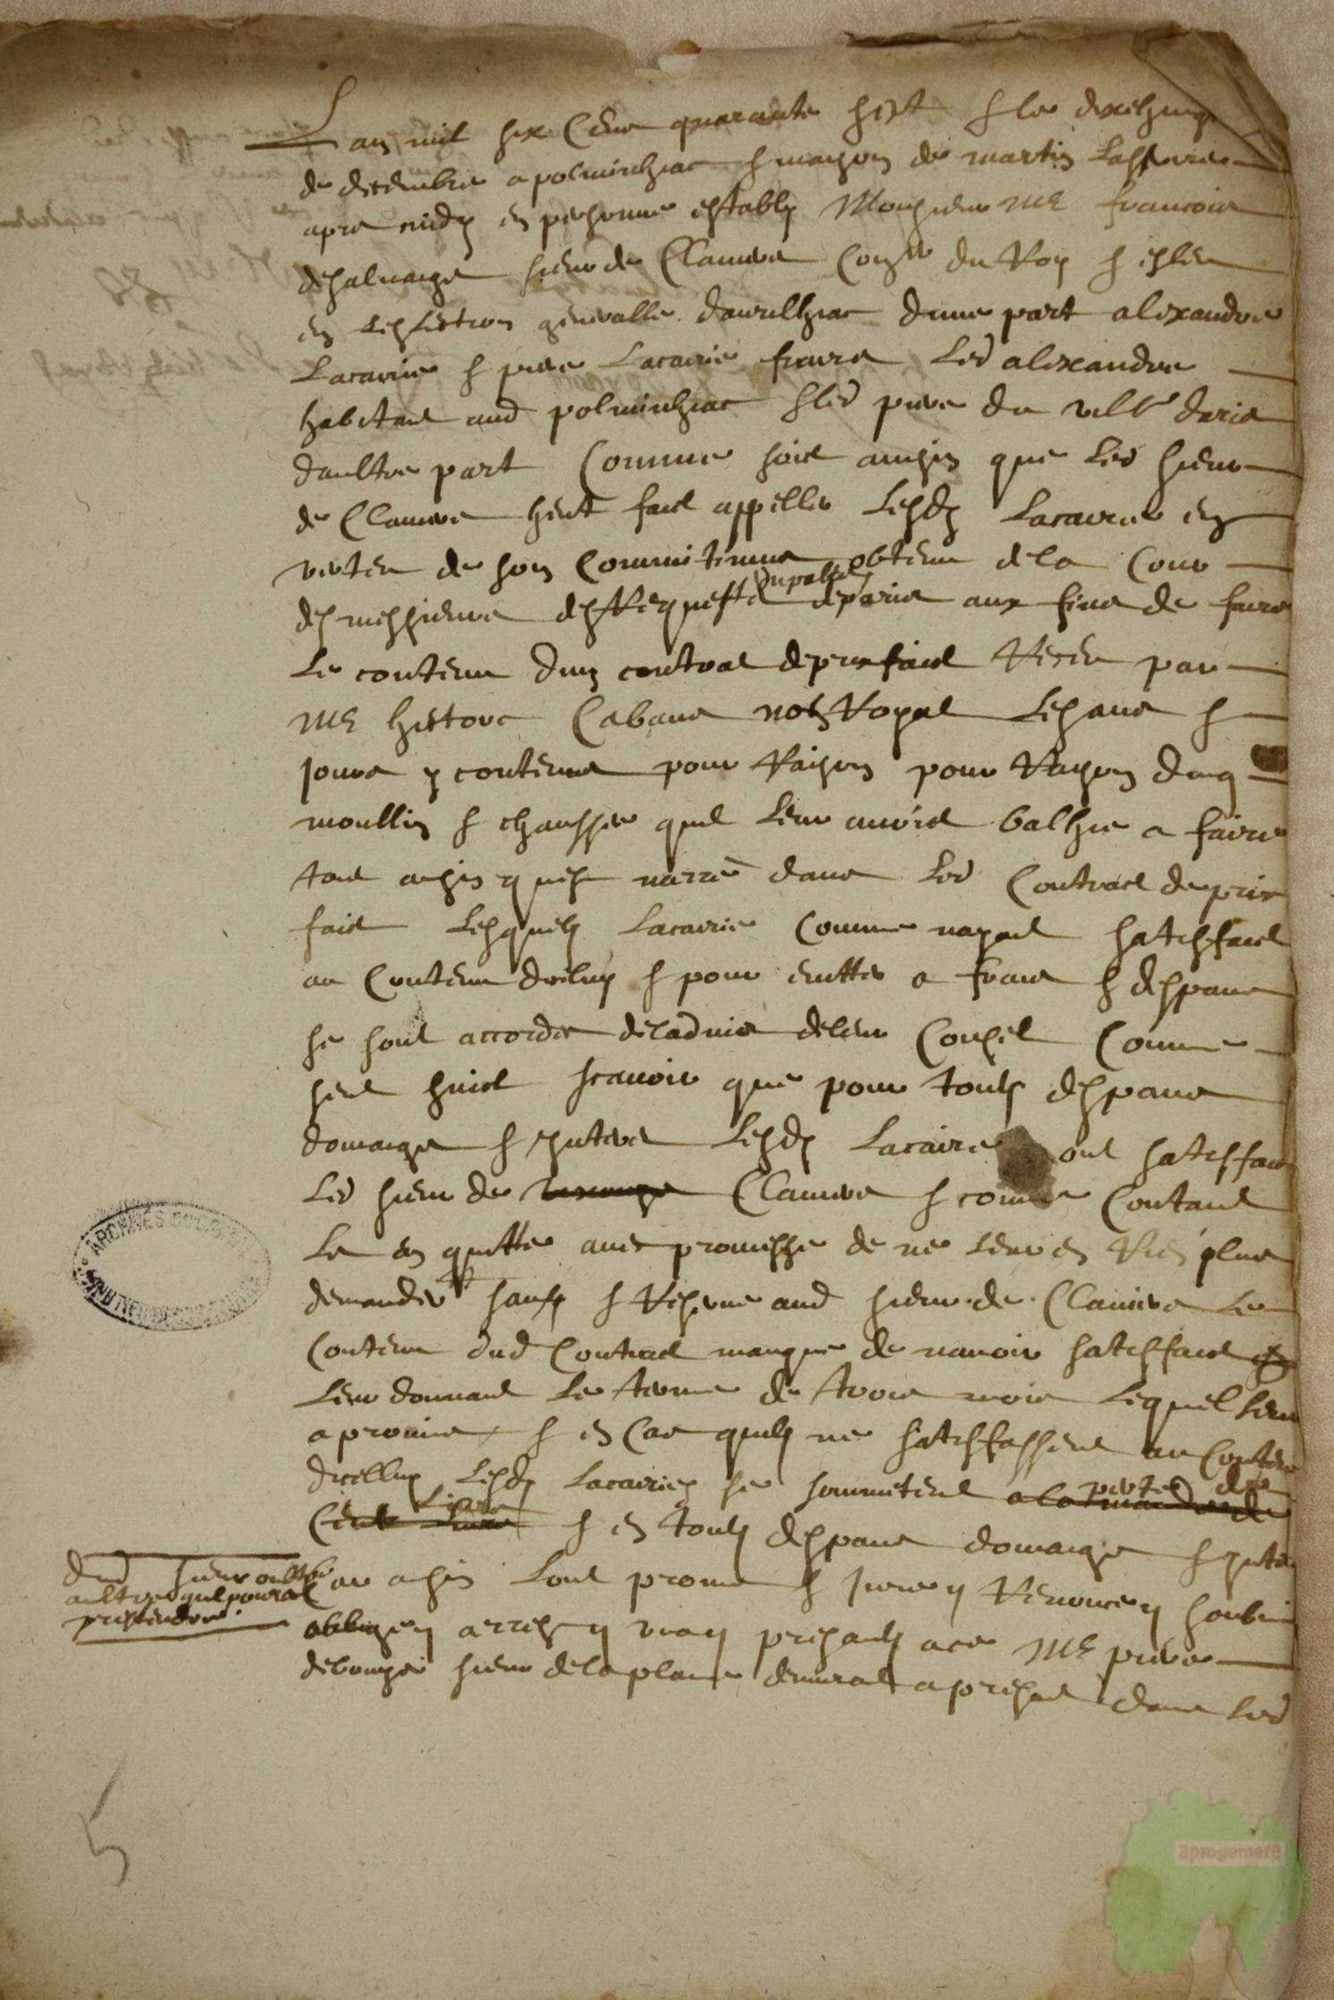 Lan mil six Cens quarante sept & le dixehuict
de decembre a polminhiac & maison de martin Lasserre
apres midy en personne estably Monsieur Me francois
desalvaige sieur de Clamire Conser du Roy & esleu
en leslection generalle daurilhiac dune part alexandre
Lacairie & pierre Lacairie freres Led alexandre
habitant aud polminhiac & led pierre du village
daultre part Comme soict ainsin que Led sieur
de Clamire heut faict appeller Lesdz Lacairies en
vertu de son Committimus obtenu de la Cour
des messieurs des Requestes du pallais de paris aux fins de faire
Le contenu dun contrat de prixfaict Receu par
Me histore Cabane nore Royal Les ans &
jours y contenus pour Raison pour Raison dung
moullin & chaussee quil leur auroict balhie a faire
tout ainsin quest narré dans Led Contract de prix
faict Lesquelz Lacairie Comme nayant satisfaict
au Contenu dicelluy & pour esvitter a frais & despans
se sont accordés de ladvis de leur Conseil Comme
sen suict scavoir que pour toutz despans
domaiges & intherestz Lesdz Lacairies ont satisfaict
Led sieur de Clamire & comme Contant
Les en quitte avec promesse de ne leur en Rien plus
demander sauf & Reserve aud sieur de Clamire Le
Contenu dud Contract manque de navoir satisfaict
Leur donnant Le terme de trois mois Lequel leur
a promis & en Cas quilz ne satisfassent au Contenu
dicelluy Lesdz Lacairies se soummetent
& en toutz despans domaiges
Car ainsin Lont promis & jure Renonce soubzmis
oblige arrest presantz a ce Me pierre
sieur de la plaine demurant a presant dans Led
dud sieur oultre
aultres quil pouroict
pretendre
ARCHIVES DU CANTAL
apmgenere
5